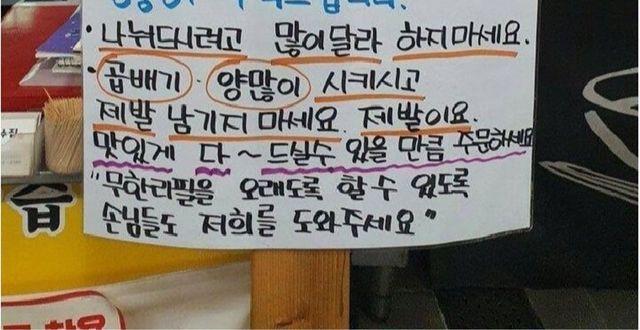 · 나눠드시려고 많이달라 하지마세요.
· 곱배기 · 양많이 시키시고
제발 남기지 마세요. 제발이요.
맛있게 다~드실수 있을 만큼 주문하세요
"무한리필을 오래도록 할 수 있도록
손님들도 저희를 도와주세요"
습